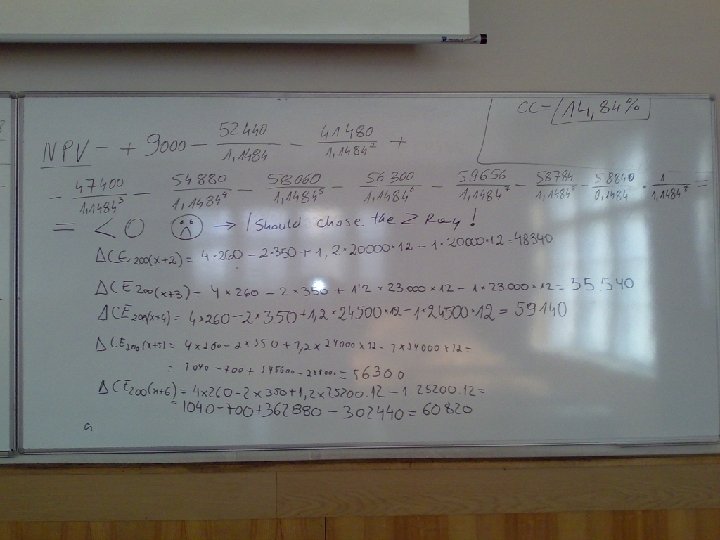 CC = 14,84%
NPV = + 9000 - 52440/1,1484 - 41480/1,1484² +
- 47400/1,1484³ - 54880/1,1484⁴ - 58060/1,1484⁵ - 56300/1,1484⁶ - 59656/1,1484⁷ - 58784/1,1484⁸ - 58840/1,1484 · 1/1,1484⁸ =
= < 0 ☹ → I Should chose the 2 !
ΔCE 200(x+2) = 4·260 - 2·350 + 1,2·20000·12 - 1·20000·12 = 48340
ΔCE 200(x+3) - 4×260 - 2×350 + 1'2×23000×12 - 1×23000×12 = 55540
ΔCE 200(x+4) = 4×260 - 2×350 + 1,2×24500×12 - 1×24500×12 = 59140
ΔCE 200(x+5) = 4×260 - 2×350 + 1,2×24000×12 - 1×24000×12 =
= 1040 - 700 + 345600 - = 56300
ΔCE 200(x+6) = 4×260 - 2×350 + 1,2×25200·12 - 1·25200·12 =
= 1040 - 700 + 362880 - 302440 = 60820